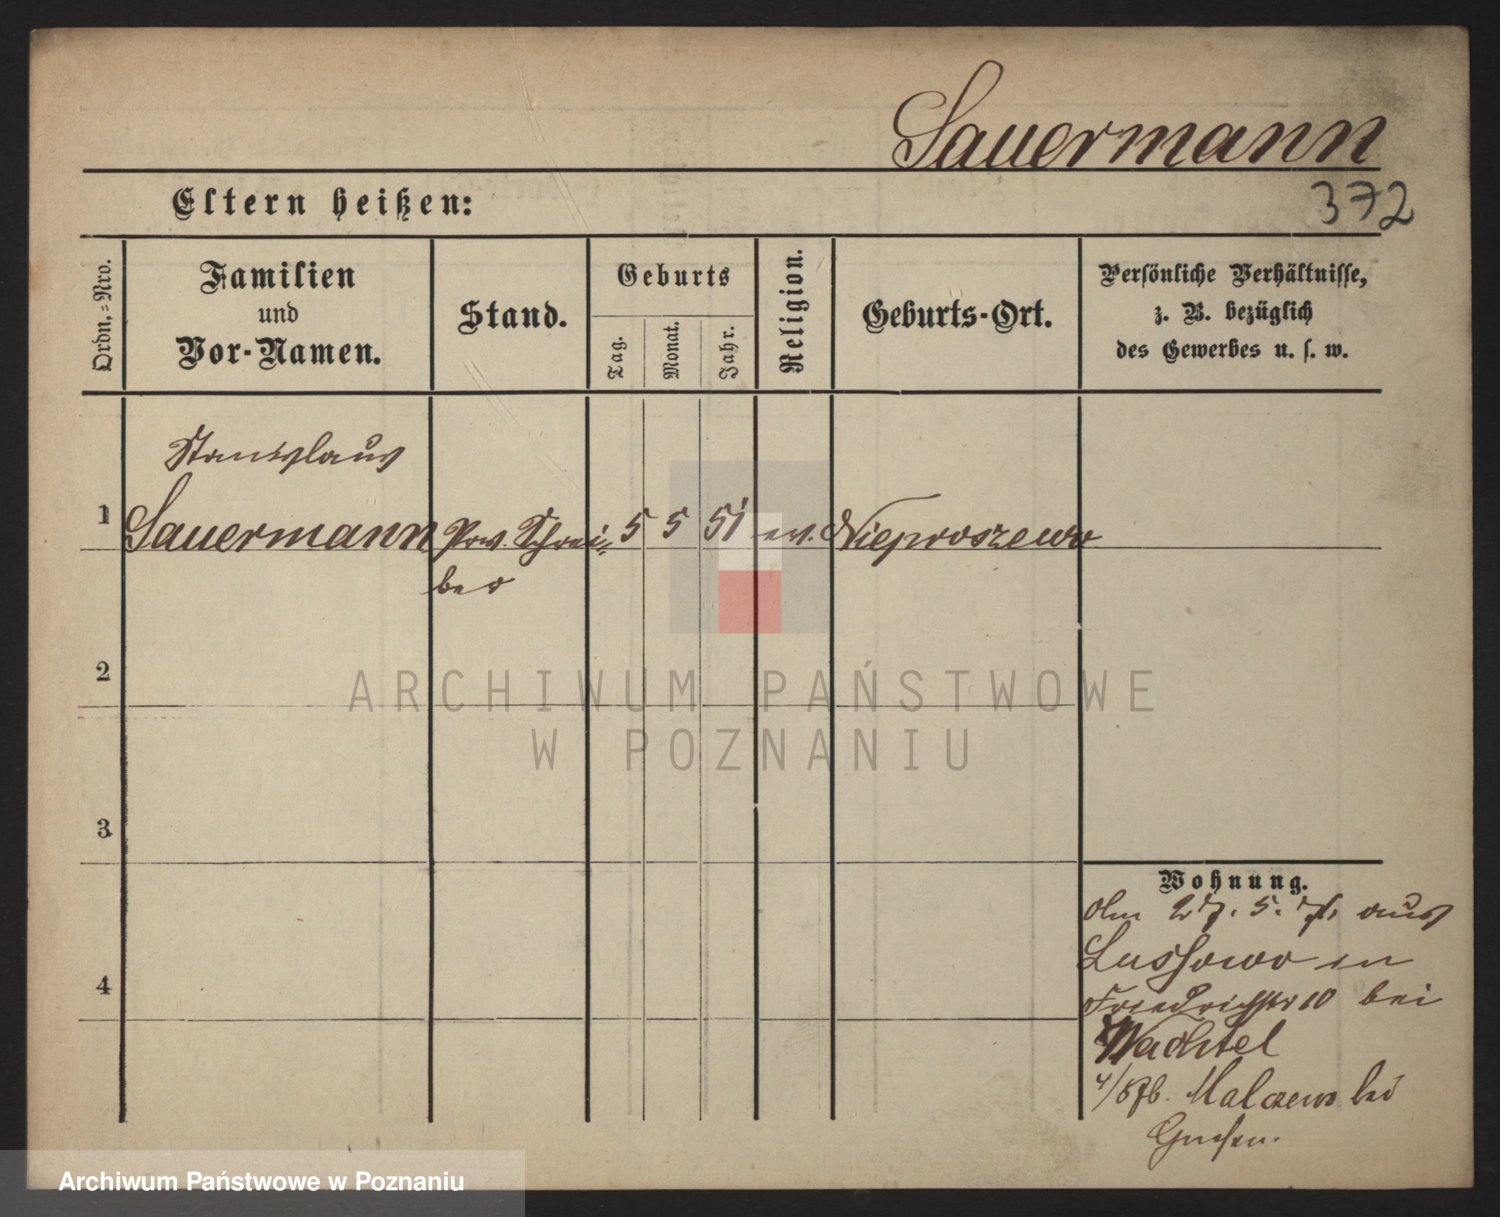 Sauermann
372
Eltern heißen:
Ordn.-Nro.
Familien
und
Vor-Namen.
Stand.
Geburts
Tag.
Monat.
Jahr.
Religion.
Geburts-Ort.
Persönliche Verhältnisse,
z. B. bezüglich
des Gewerbes u. s. w.
Stanislaus
1 Sauermann Prv. Schrei= 5 5 51 ev. Niepruszewo
ber
2
3
4
Wohnung.
Am 27. 5. aus
Lussowo in
Friedrichstr 10 bei
Wachtel
4/8 76. Malczewo bei
Gnesen.
ARCHIWUM PAŃSTWOWE
W POZNANIU
Archiwum Państwowe w Poznaniu